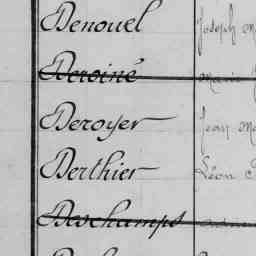 Denouel Joseph
Deroiné Marie
Deroyer Jean
Berthier Léon
Deschamps